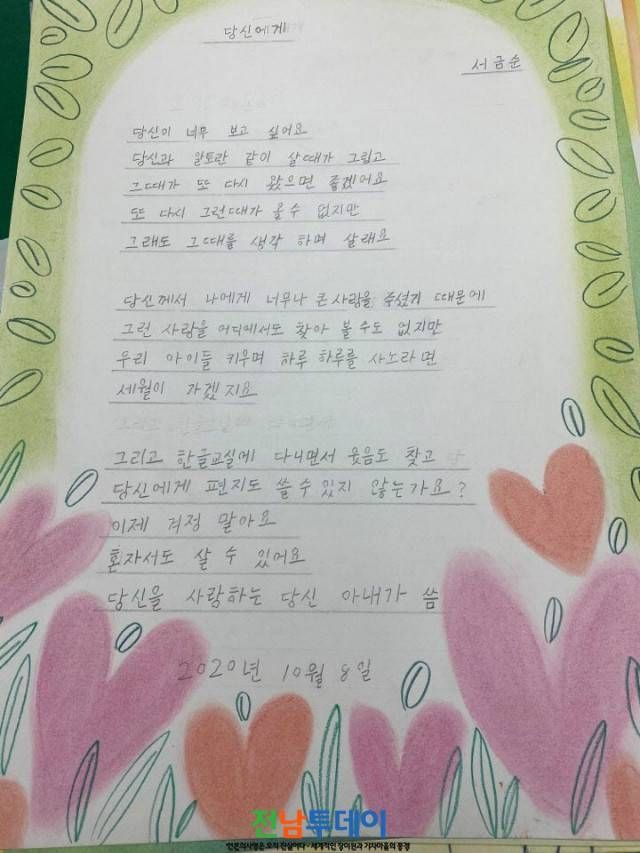 당신에게
서금순
당신이 너무 보고 싶어요
당신과 알토란 같이 살때가 그립고
그때가 또 다시 왔으면 좋겠어요
또 다시 그런때가 올수 없지만
그래도 그때를 생각 하며 살래요
당신께서 나에게 너무나 큰사랑을 주셨기 때문에
그런 사랑을 어디에서도 찾아 볼수도 없지만
우리 아이들 키우며 하루 하루를 사노라면
세월이 가겠지요
그리고 한글교실에 다니면서 웃음도 찾고
당신에게 편지도 쓸수있지 않는가요?
이제 걱정 말아요
혼자서도 살 수 있어요
당신을 사랑하는 당신 아내가 씀
2020년 10월 8일
전남투데이
언론의사명은 오직 진실이다 - 세계적인 장미원과 기차마을의 풍경